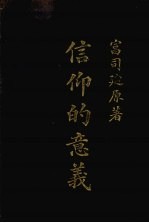 富司迪原著
信仰的意義